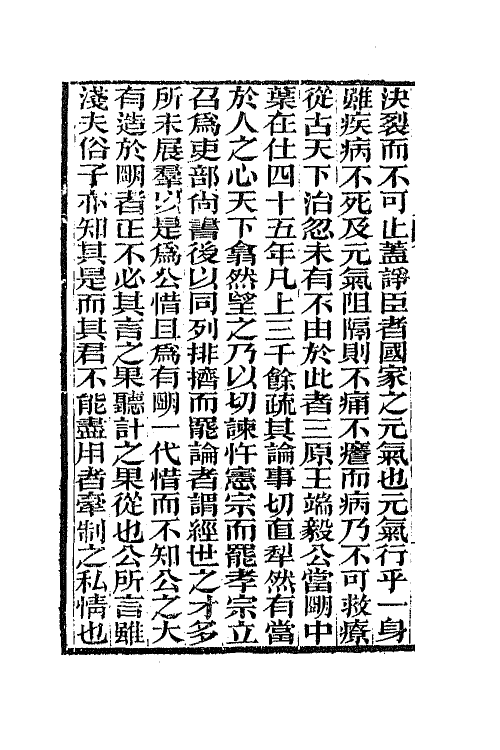 決裂而不可止蓋諍臣者國家之元氣也元氣行乎一身
雖疾病不死及元氣阻隔則不痛不癢而病乃不可救療
從古天下治忽未有不由於此者三原王端毅公當明中
葉在仕四十五年凡上三千餘疏其論事切直犁然有當
於人之心天下翕然望之乃以切諫忤憲宗而罷孝宗立
召爲吏部尚書後以同列排擠而罷論者謂經世之才多
所未展羣以是爲公惜且爲有明一代惜而不知公之大
有造於明者正不必其言之果聽計之果從也公所言雖
淺夫俗子亦知其是而其君不能盡用者牽制之私情也